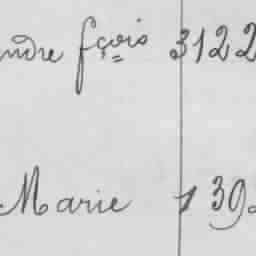 ndre fçois 3122
Marie 139